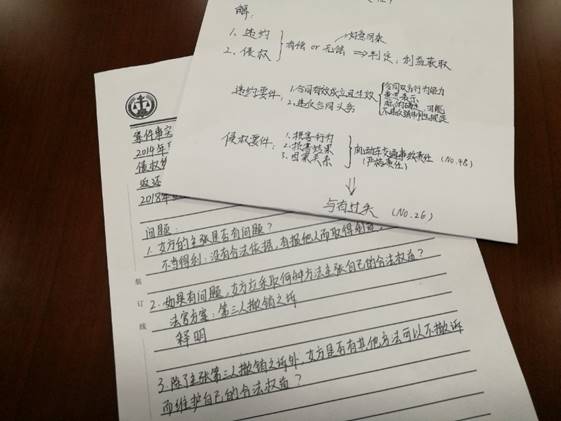 解:
1. 违约
2. 侵权
有偿 or 无偿 ⇒ 判定: 利益获取
好意同乘
违约要件: 1. 合同有效成立且生效
2. 违反合同义务
合同双方行为能力
意思表示
侵权要件: 1. 损害行为
2. 损害结果
3. 因果关系
机动车交通事故责任 (No.48)
(严格责任)
与有过失 (No.26)
案件事实
2014年
侵权
返还
2018年
问题:
1. 女方的主张是否有问题?
不当得利: 没有合法依据, 有损他人而取得利益
2. 如果有问题, 女方应采取何种方法主张自己的合法权益?
法官方案: 第三人撤销之诉
释明
3. 除了主张第三人撤销之诉外, 女方是否有其他方法可以不撤诉
而维护自己的合法权益?
装
订
线